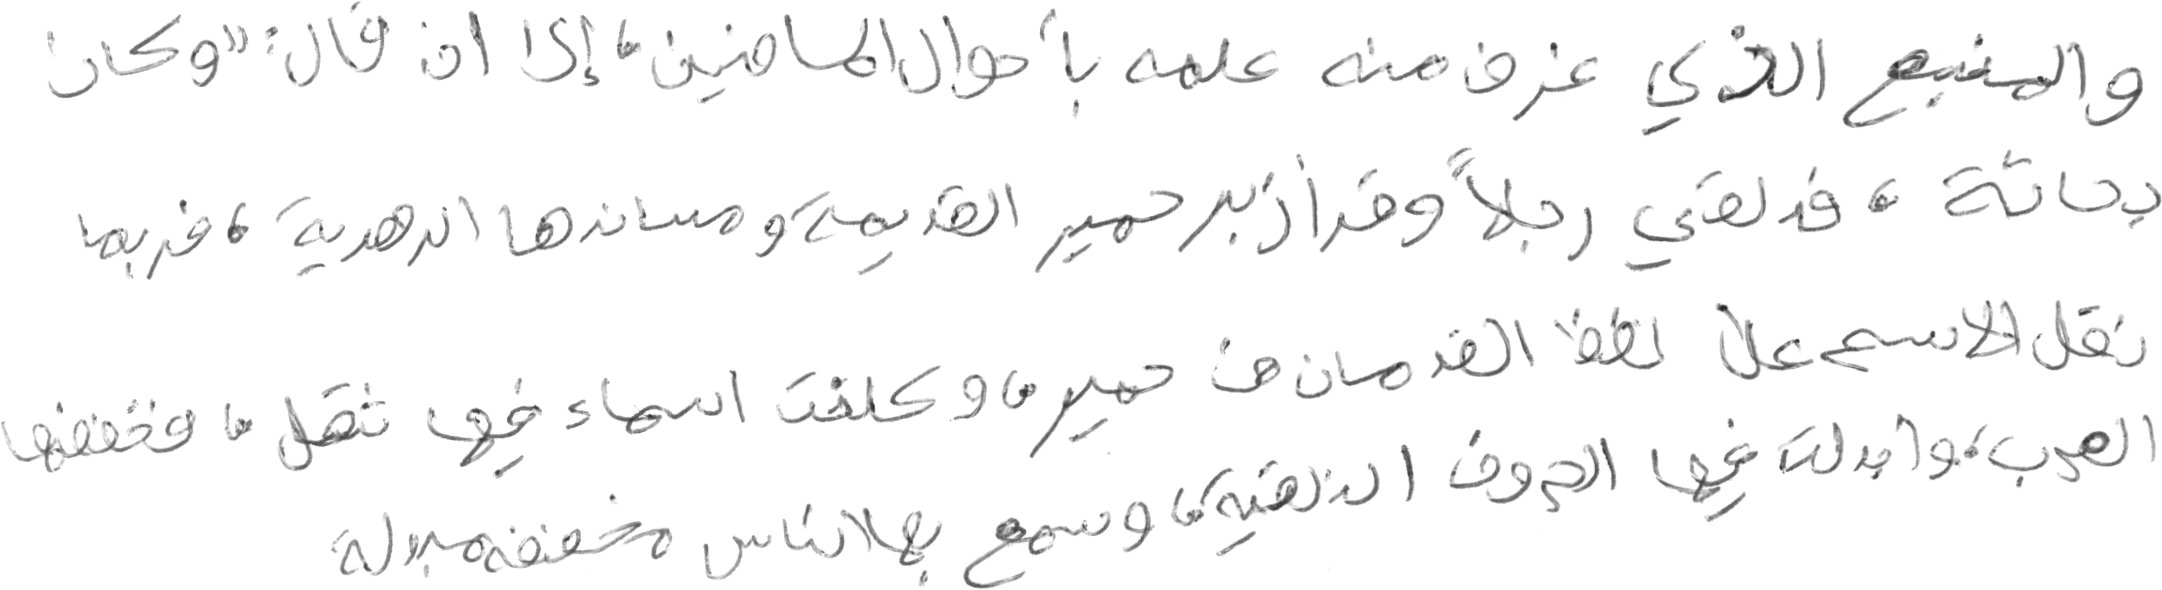 والمنبع الذي غرف منه علمه بأحوال الماضين، إلى ان قال: "وكان
بحاثة، قد لقي رجلاً وقرأ زبر حمير القديمة ومساندها الدهرية، فربما
نقل الاسم على لفظ القدمان من حمير، وكانت اسماء فيها ثقل، فخففتها
العرب، وأبدلت فيها الحروف الذلقية، وسمع بها الناس مخففة مبدلة